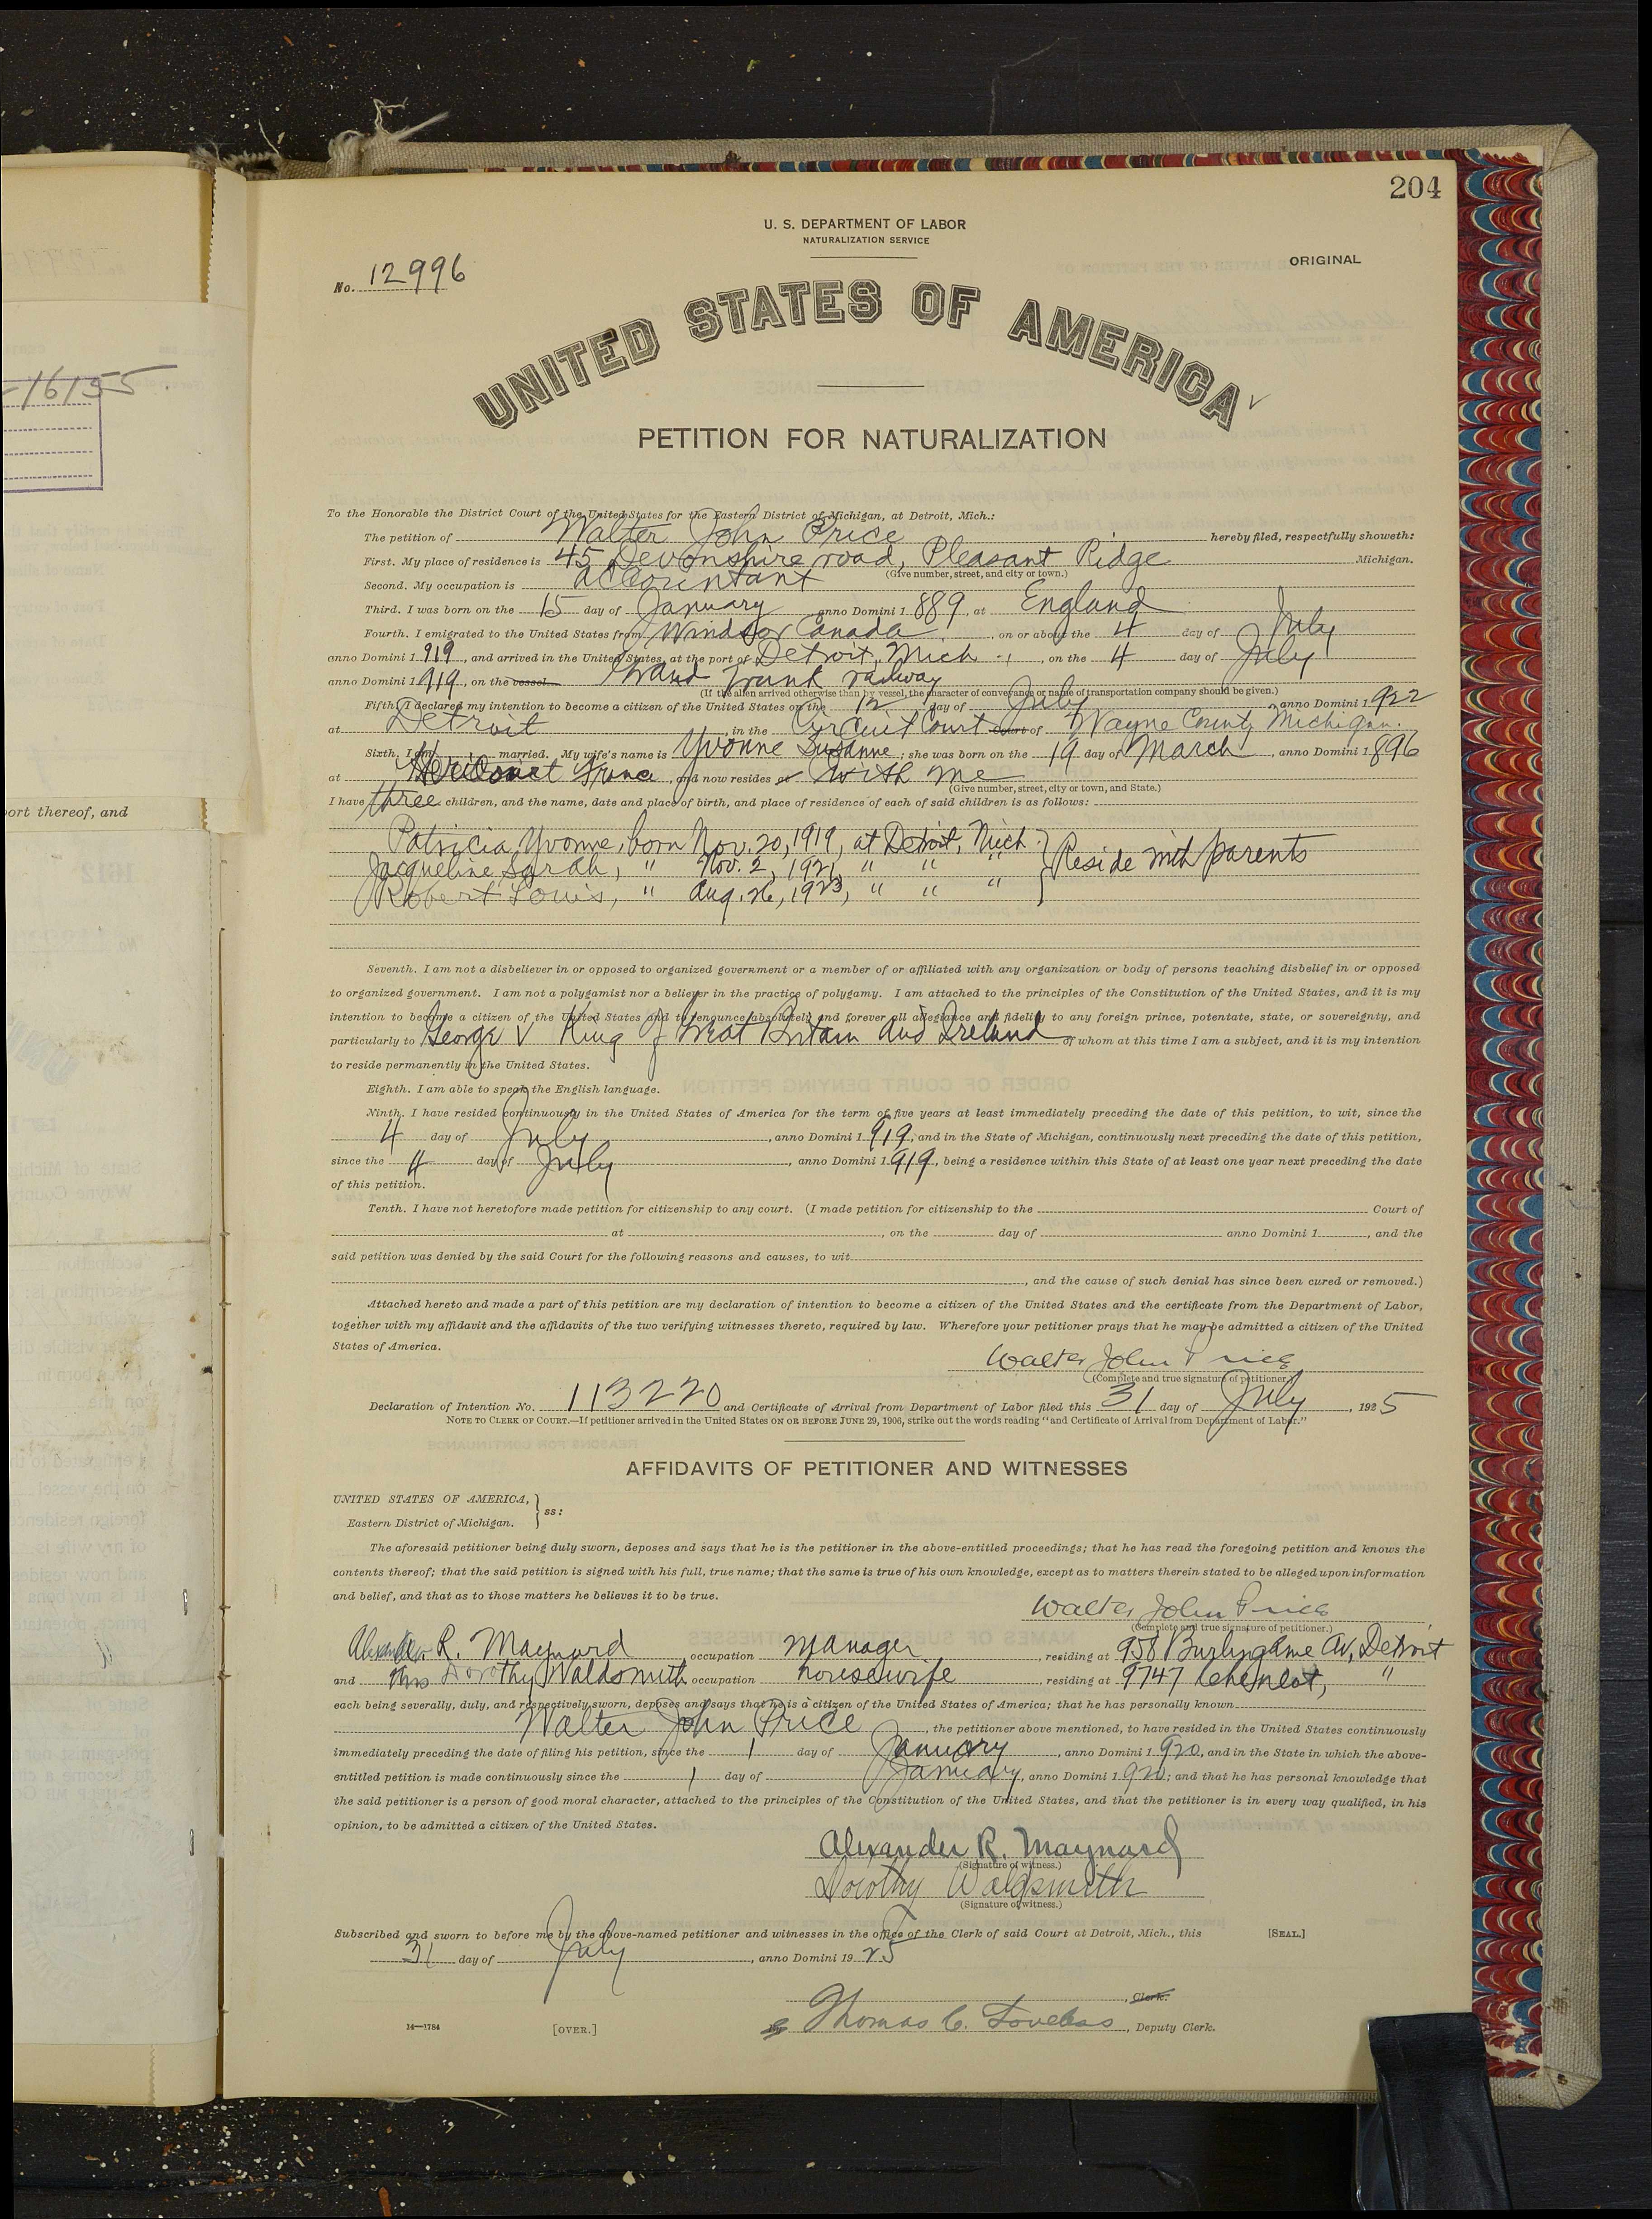 204
U. S. DEPARTMENT OF LABOR
NATURALIZATION SERVICE
ORIGINAL
No. 12996
UNITED STATES OF AMERICA
PETITION FOR NATURALIZATION
To the Honorable the District Court of the United States for the Eastern District of Michigan, at Detroit, Mich.:
The petition of Walter John Price hereby filed, respectfully showeth:
First. My place of residence is 45 Devonshire road, Pleasant Ridge Michigan.
(Give number, street, and city or town.)
Second. My occupation is accountant
Third. I was born on the 15 day of January anno Domini 1889, at England
Fourth. I emigrated to the United States from Windsor Canada, on or about the 4 day of July
anno Domini 1919, and arrived in the United States, at the port of Detroit, Mich, on the 4 day of July
anno Domini 1919, on the vessel Grand Trunk railway
(If the alien arrived otherwise than by vessel, the character of conveyance or name of transportation company should be given.)
Fifth. I declared my intention to become a citizen of the United States on the 12 day of July anno Domini 1922
at Detroit in the Circuit Court Court of Wayne County Michigan.
Sixth. I am married. My wife's name is Yvonne Suzanne; she was born on the 19 day of March, anno Domini 1896
at France, and now resides at with me
(Give number, street, city or town, and State.)
I have three children, and the name, date and place of birth, and place of residence of each of said children is as follows:
Patricia Yvonne, born Nov. 20, 1919, at Detroit, Mich. } Reside with parents
Jacqueline Sarah, " Nov. 2, 1921, " " "
Robert Louis, " Aug. 26, 1923, " " "
Seventh. I am not a disbeliever in or opposed to organized government or a member of or affiliated with any organization or body of persons teaching disbelief in or opposed
to organized government. I am not a polygamist nor a believer in the practice of polygamy. I am attached to the principles of the Constitution of the United States, and it is my
intention to become a citizen of the United States and to renounce absolutely and forever all allegiance and fidelity to any foreign prince, potentate, state, or sovereignty, and
particularly to George V King of Great Britain and Ireland of whom at this time I am a subject, and it is my intention
to reside permanently in the United States.
Eighth. I am able to speak the English language.
Ninth. I have resided continuously in the United States of America for the term of five years at least immediately preceding the date of this petition, to wit, since the
4 day of July, anno Domini 1919, and in the State of Michigan, continuously next preceding the date of this petition,
since the 4 day of July, anno Domini 1919, being a residence within this State of at least one year next preceding the date
of this petition.
Tenth. I have not heretofore made petition for citizenship to any court. (I made petition for citizenship to the Court of
at, on the day of anno Domini 1, and the
said petition was denied by the said Court for the following reasons and causes, to wit
, and the cause of such denial has since been cured or removed.)
Attached hereto and made a part of this petition are my declaration of intention to become a citizen of the United States and the certificate from the Department of Labor,
together with my affidavit and the affidavits of the two verifying witnesses thereto, required by law. Wherefore your petitioner prays that he may be admitted a citizen of the United
States of America.
Walter John Price
(Complete and true signature of petitioner.)
Declaration of Intention No. 113220 and Certificate of Arrival from Department of Labor filed this 31 day of July, 1925
NOTE TO CLERK OF COURT.—If petitioner arrived in the United States ON OR BEFORE JUNE 29, 1906, strike out the words reading "and Certificate of Arrival from Department of Labor."
AFFIDAVITS OF PETITIONER AND WITNESSES
UNITED STATES OF AMERICA, } ss:
Eastern District of Michigan.
The aforesaid petitioner being duly sworn, deposes and says that he is the petitioner in the above-entitled proceedings; that he has read the foregoing petition and knows the
contents thereof; that the said petition is signed with his full, true name; that the same is true of his own knowledge, except as to matters therein stated to be alleged upon information
and belief, and that as to those matters he believes it to be true.
Walter John Price
(Complete and true signature of petitioner.)
Alexander R. Maynard occupation manager, residing at 958 Burlingame Av, Detroit
and Mrs Dorothy Waldsmith occupation housewife, residing at 9747 "
each being severally, duly, and respectively sworn, deposes and says that he is a citizen of the United States of America; that he has personally known
Walter John Price, the petitioner above mentioned, to have resided in the United States continuously
immediately preceding the date of filing his petition, since the 1 day of January, anno Domini 1920, and in the State in which the above-
entitled petition is made continuously since the 1 day of January, anno Domini 1920; and that he has personal knowledge that
the said petitioner is a person of good moral character, attached to the principles of the Constitution of the United States, and that the petitioner is in every way qualified, in his
opinion, to be admitted a citizen of the United States.
Alexander R. Maynard
(Signature of witness.)
Dorothy Waldsmith
(Signature of witness.)
Subscribed and sworn to before me by the above-named petitioner and witnesses in the office of the Clerk of said Court at Detroit, Mich., this [SEAL.]
31 day of July, anno Domini 1925
, Clerk.
Thomas C. , Deputy Clerk.
14—1784 [OVER.]
16155
port thereof, and